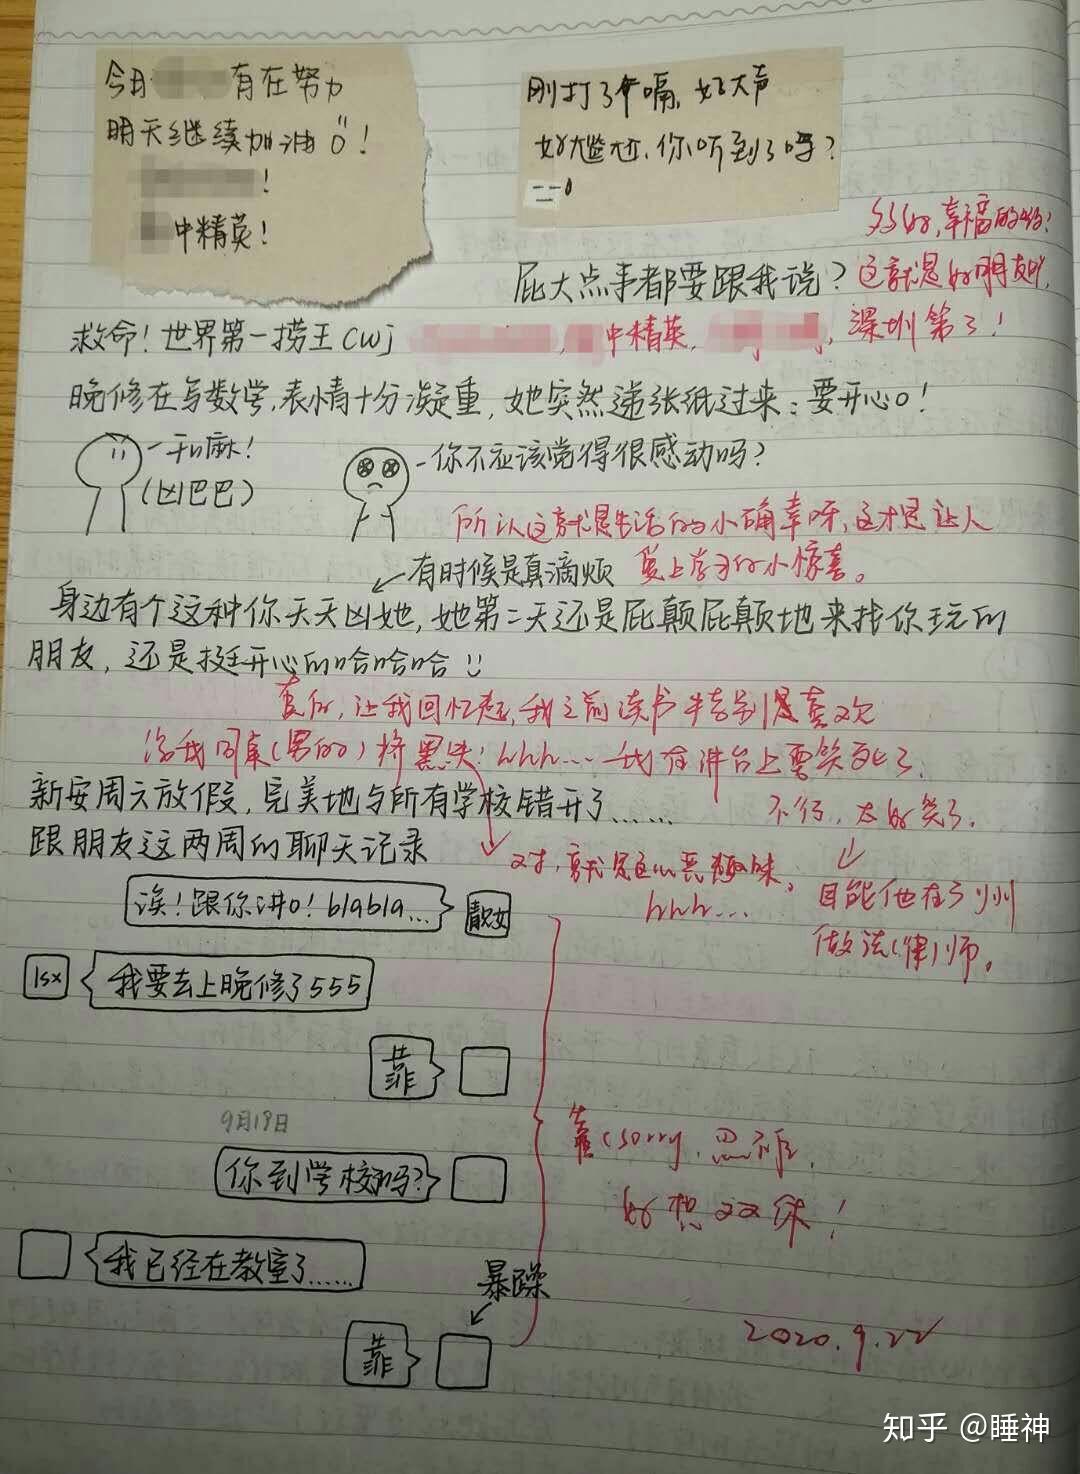 今日 有在努力
明天继续加油o!
!
中精英!
刚打了个嗝,好大声
好尴尬,你听到了吗?
幸福的
屁大点事都要跟我说?
这就是好朋友吖,
救命!世界第一捞王cwj
中精英,
深圳第了!
晚修在写数学,表情十分凝重,她突然递张纸过来:要开心o!
-干嘛!
(凶巴巴)
-你不应该觉得很感动吗?
所以这就是生活的小确幸呀,这才是让人
爱上学习的小惊喜。
有时候是真滴烦
身边有个这种你天天凶她,她第二天还是屁颠屁颠地来找你玩的
朋友,还是挺开心的哈哈哈
真的,让我回忆起,我之前读书特别是喜欢
给我同桌(男的)将黑头!hhh...我在讲台上要笑死了,
不行,太好笑了。
新安周六放假,完美地与所有学校错开了……
跟朋友这两周的聊天记录
对,就是这心恶趣味,
hhh...
目能他在广州
做法(律)师。
诶!跟你讲o!blabla...
靓女
lsx
我要去上晚修了555
靠
9月19日
你到学校了吗?
我已经在教室了……
暴躁
靠
靠(sorry,
好想双休!
2020.9.22
知乎 @睡神